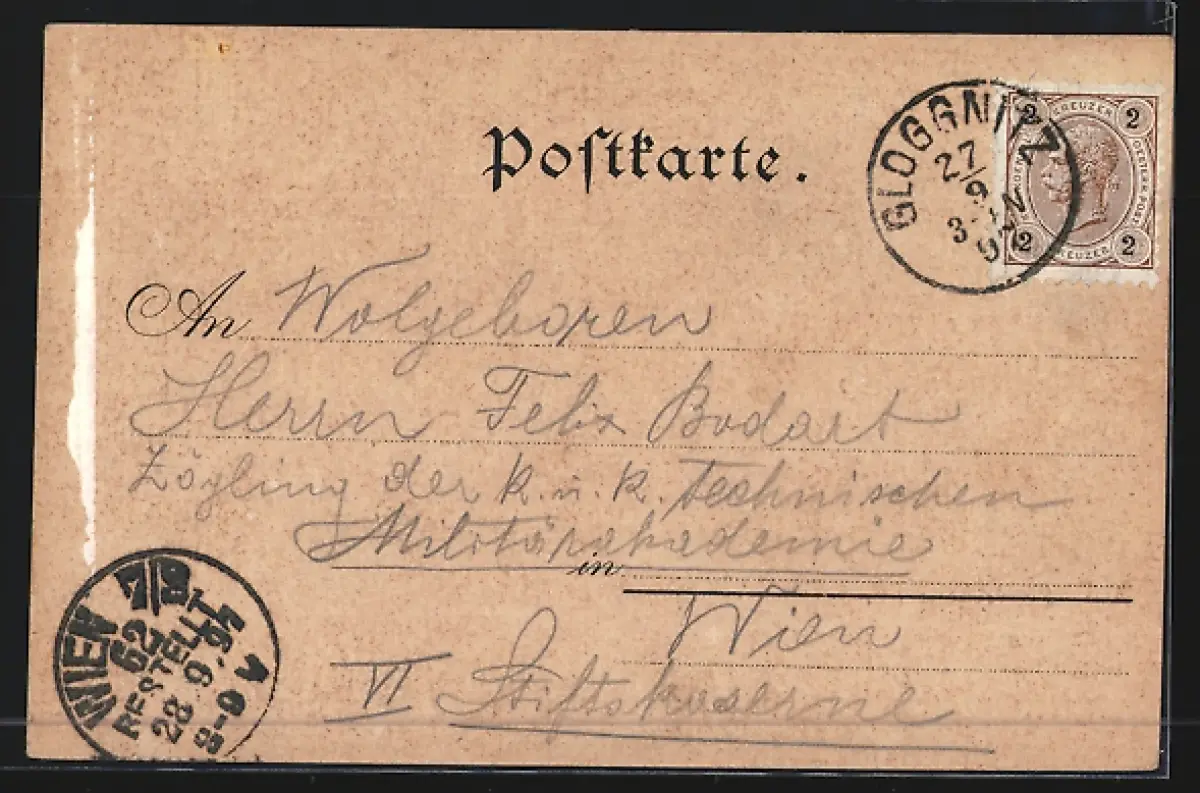 Postkarte.
GLOGGNITZ
27/9
3
97
2 KREUZER 2
OESTERR. POST
2 KREUZER 2
An Wolgeboren
Herrn Felix Bodart
Zögling der k. u. k. technischen
Militärakademie
in
Wien
VI Stiftskaserne
WIEN 7/8
62
BESTELLT
28.9.97
8-9 V